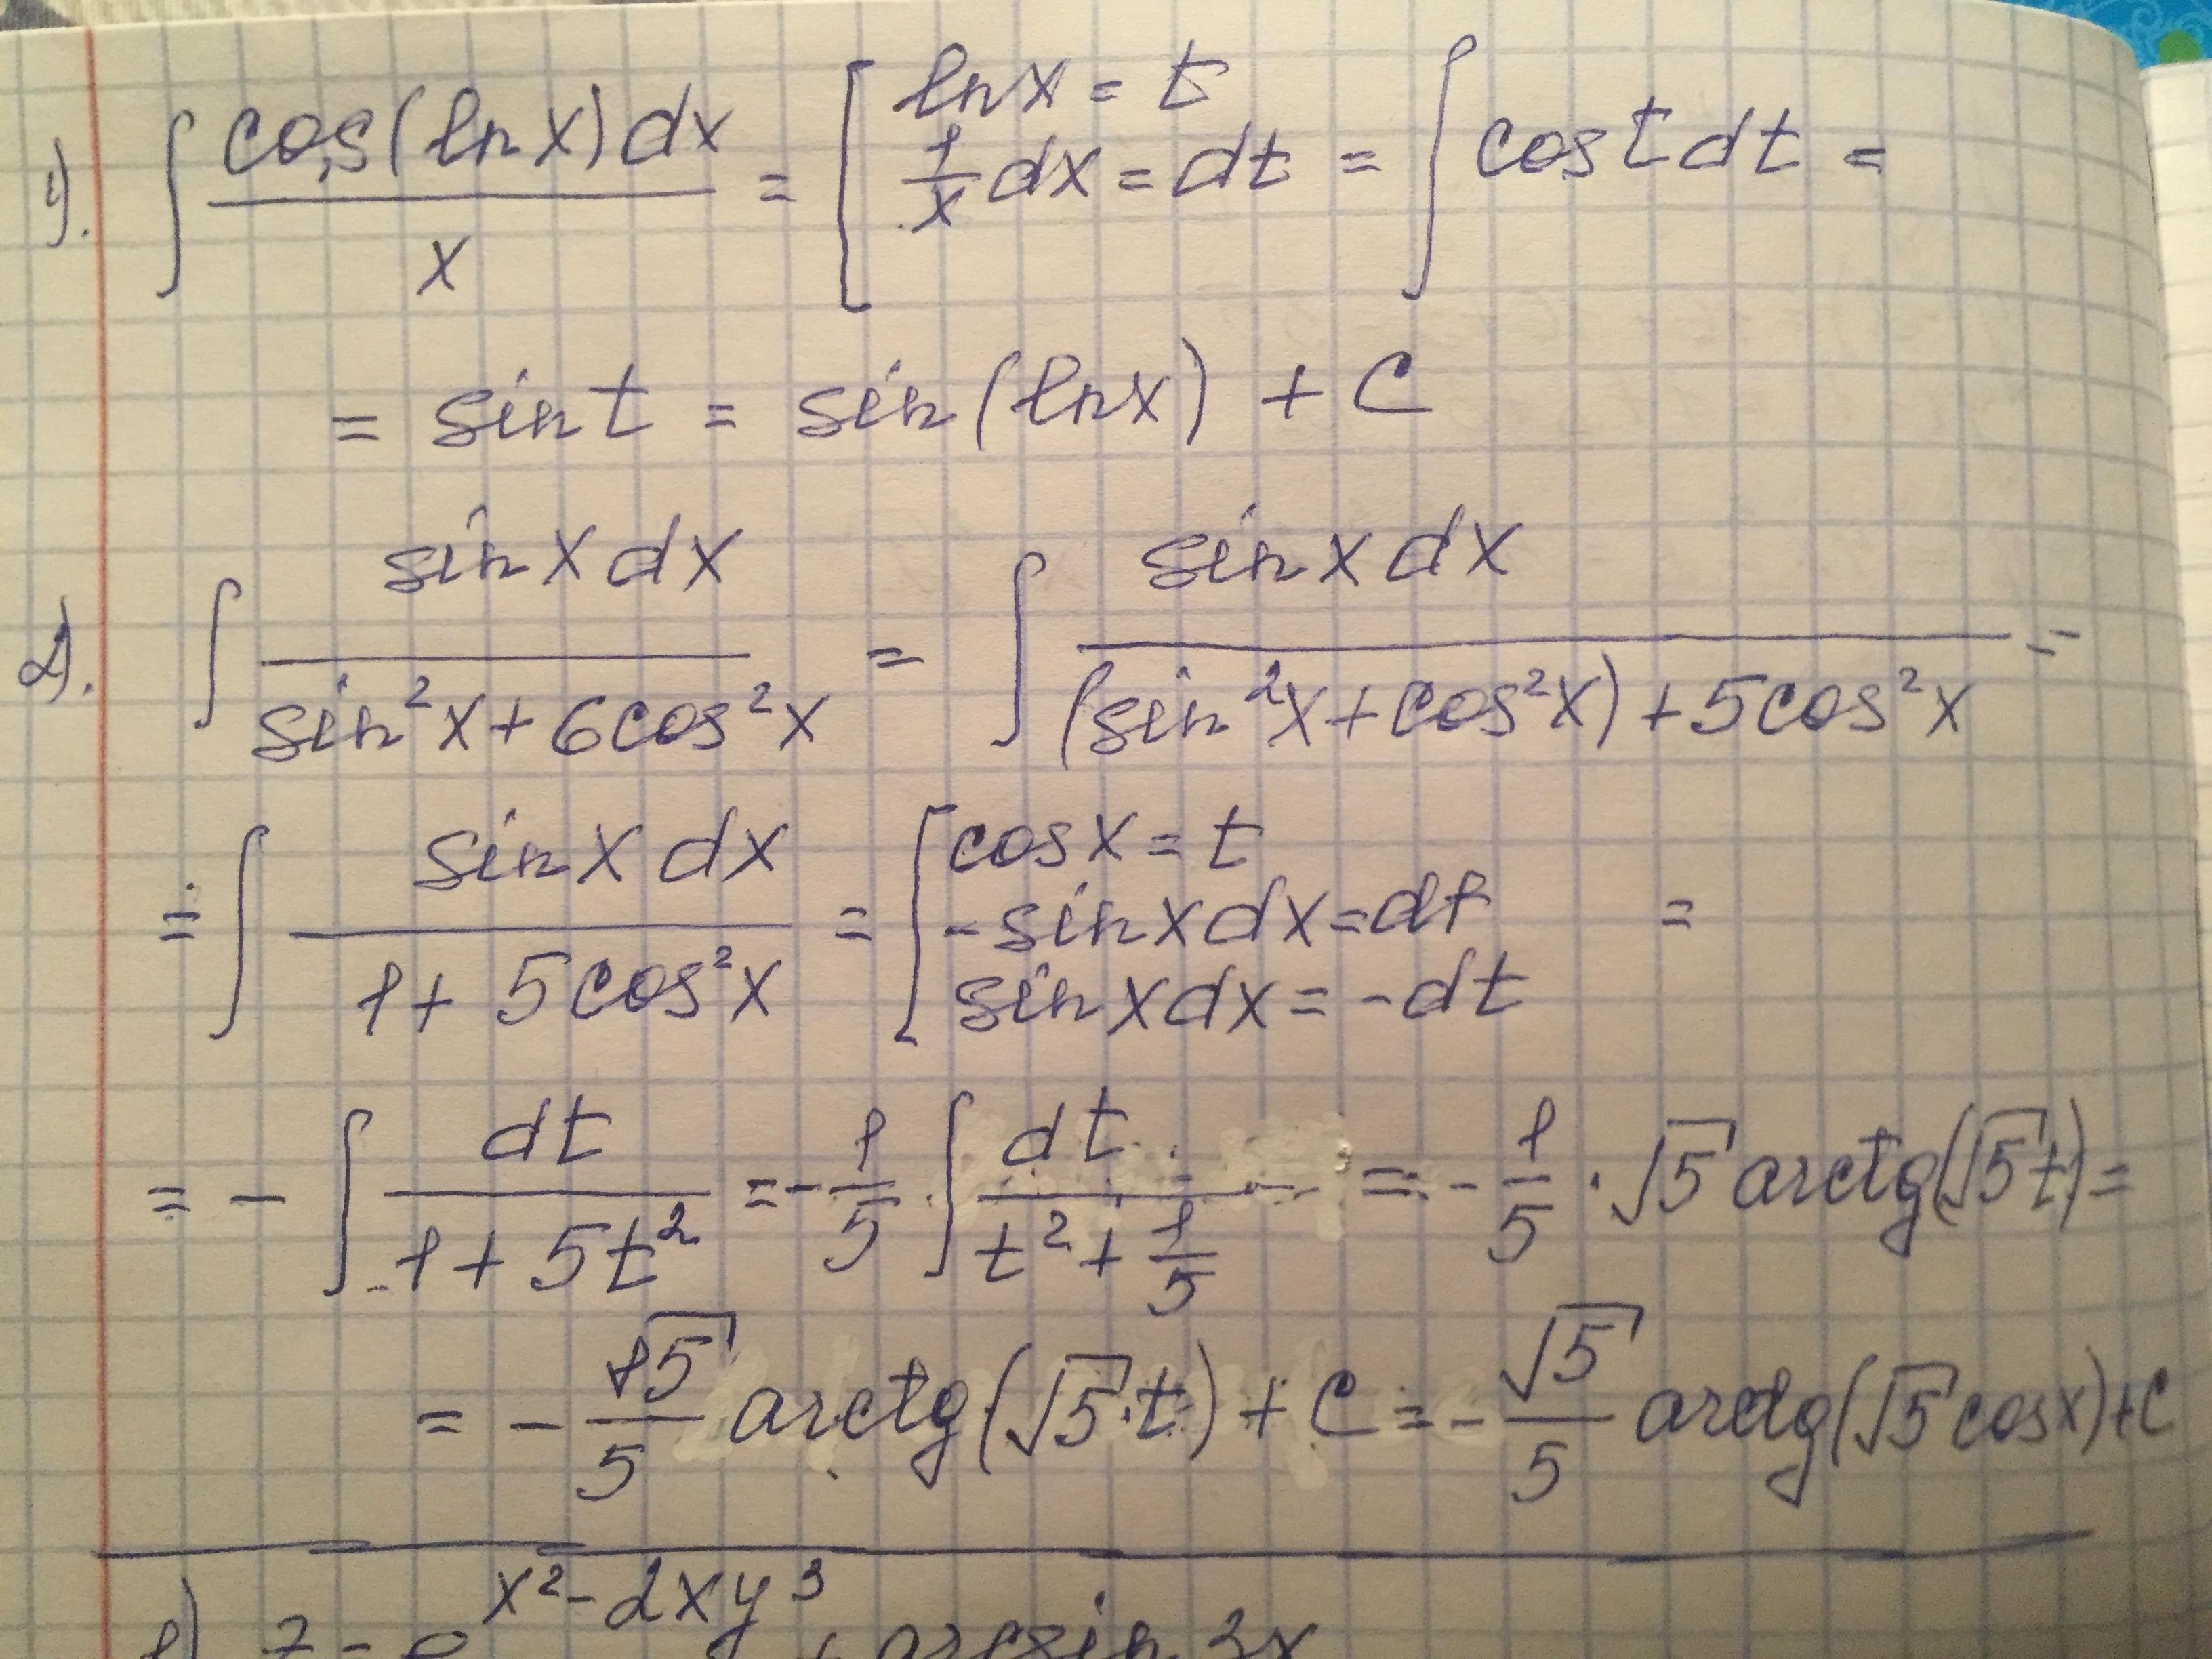 1). ∫ cos(ln x)dx / x = [ ln x = t
1/x dx = dt = ∫ cos t dt =
= sin t = sin(ln x) + C
2). ∫ sin x dx / sin²x + 6cos²x = ∫ sin x dx / (sin²x + cos²x) + 5cos²x =
= ∫ sin x dx / 1 + 5cos²x = [ cos x = t
-sin x dx = dt =
sin x dx = -dt
= - ∫ dt / 1 + 5t² = -1/5 · ∫ dt / t² + 1/5 = -1/5 · √5 arctg(√5 t) =
= - √5/5 arctg(√5 · t) + C = - √5/5 arctg(√5 cos x) + C
1) z = e^(x² - 2xy³) + arcsin 2x